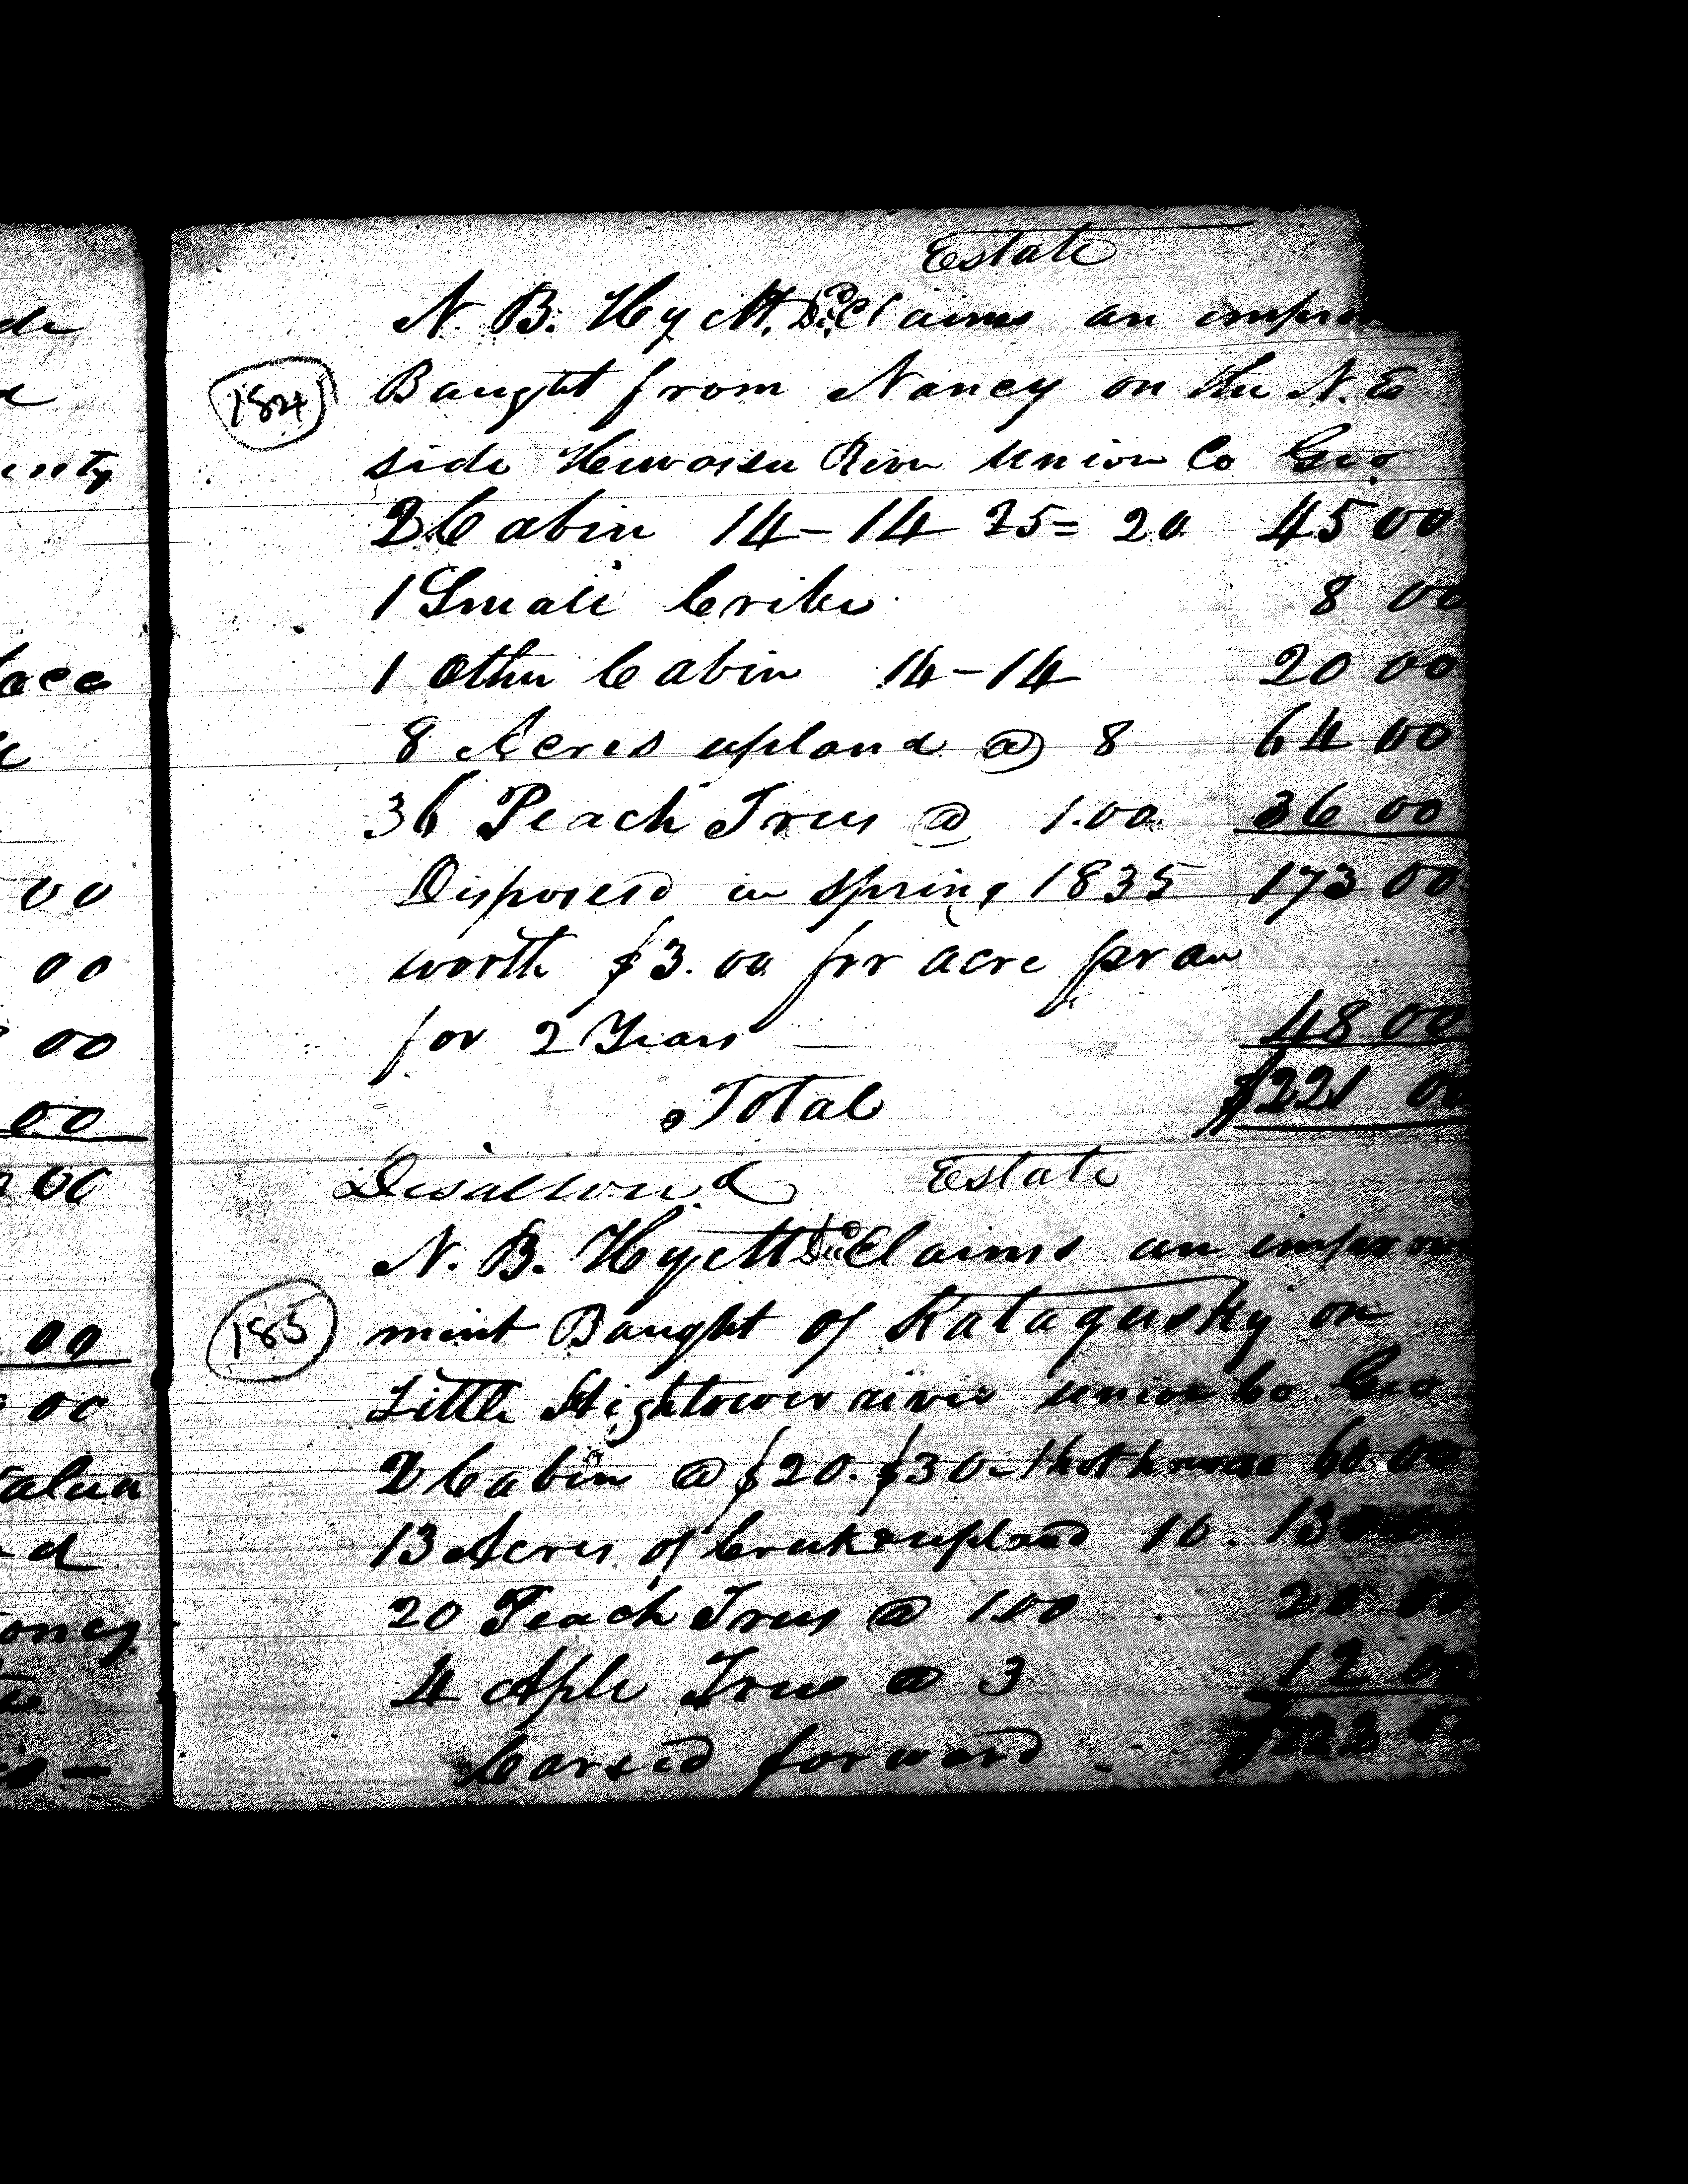 de
enty
00
00
00
00
00
00
00
Estate
N. B. Hyett, Dec'd Claims an improv
184 Baught from Nancy on the N. E
side Hewassu River Union Co Geo
2 Cabin 14-14 25= 20. 45 00
1 Small Cribu 8 00
1 Other Cabin 14-14 20 00
8 Acres upland @ 8 64 00
36 Peach Trees @ 1.00 36 00
Disposesd in Spring 1835 173 00
worth $3.00 per acre per an
for 2 Years — 48 00
Total $221 00
Disallowed Estate
N. B. Hyett Dec'd Claims an improve
185 ment Baught of Katagusky on
Little Hightower river Union Co Geo
2 Cabin @ $20. $30- 1 hot house 60.00
13 Acres of Creek upland 10. 130
20 Peach Trees @ 1.00 20 00
4 Aple Trees @ 3 12 00
Carred forward - $222 00